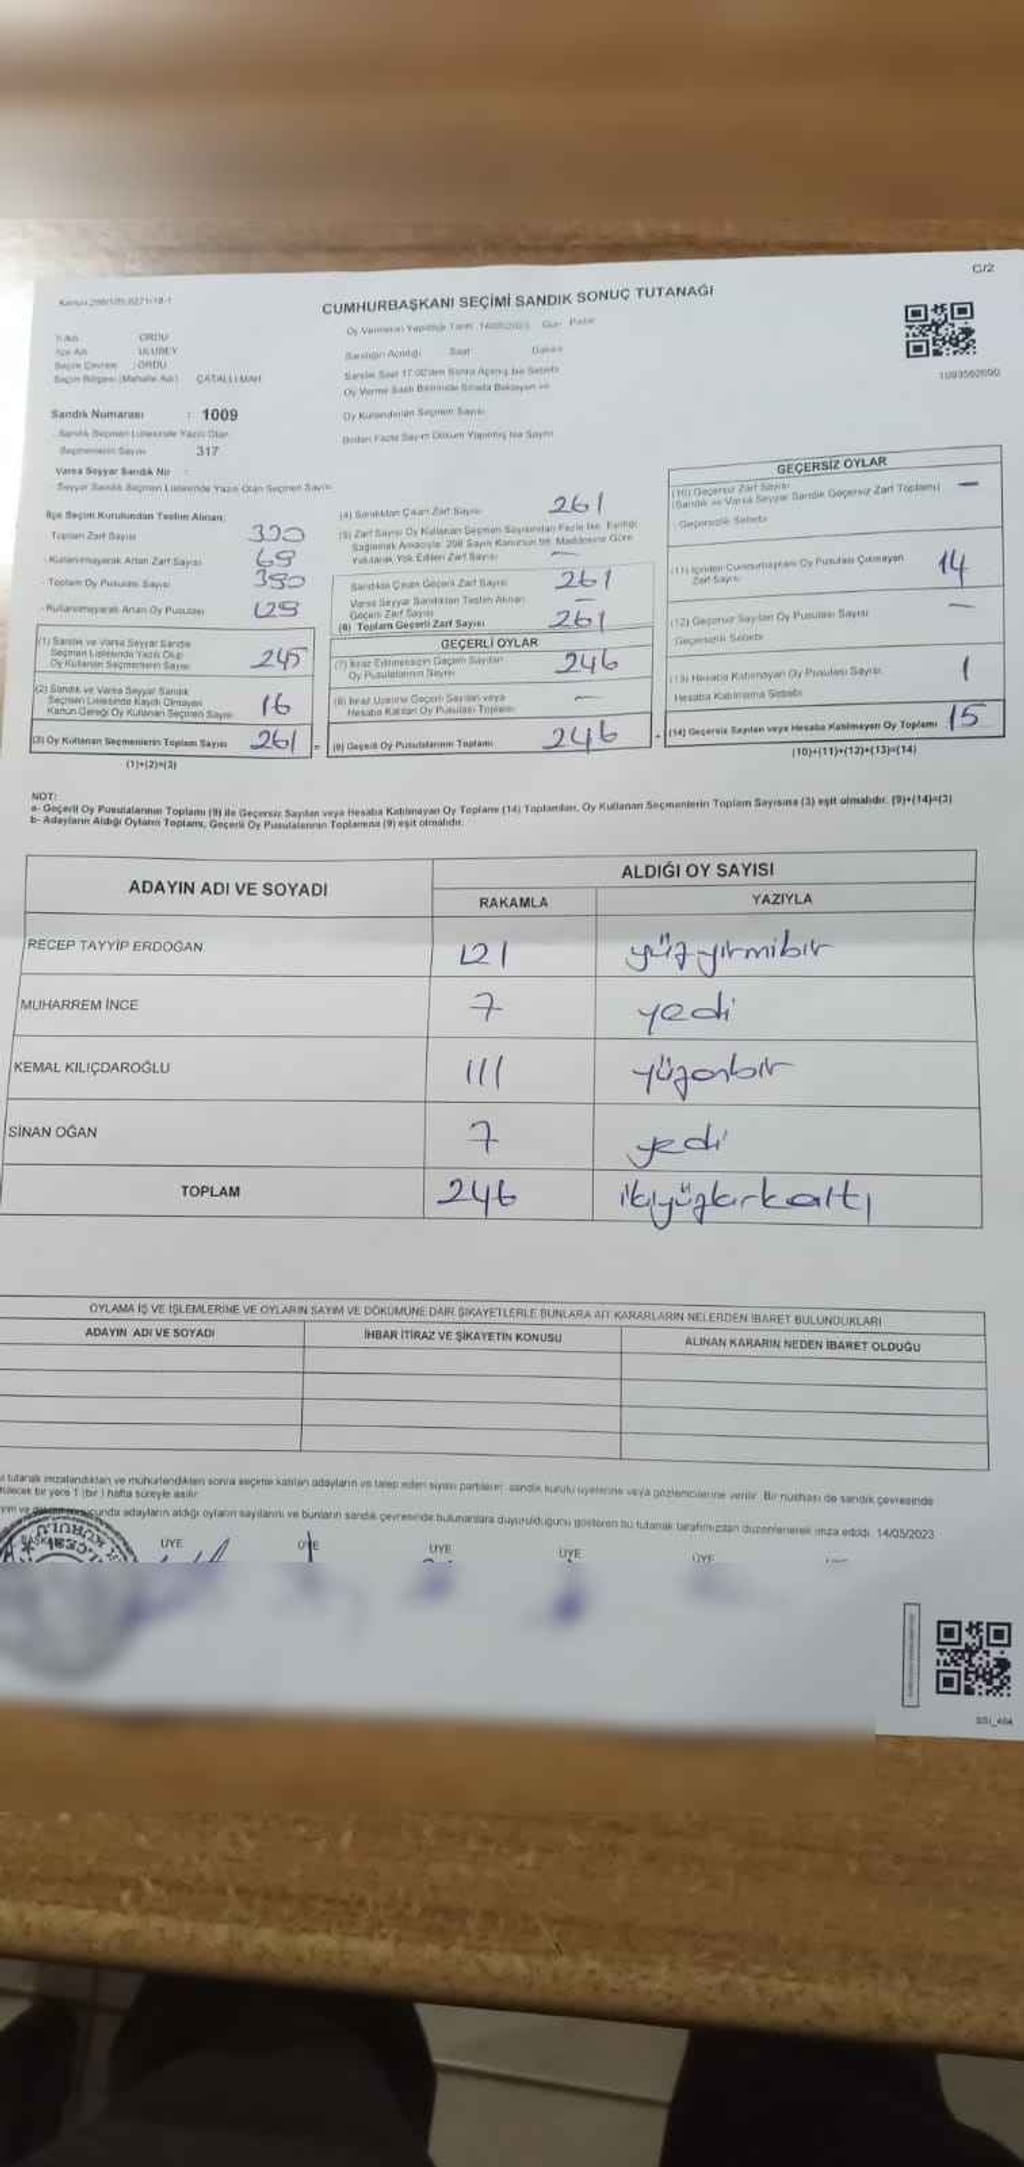 C/2
CUMHURBAŞKANI SEÇİMİ SANDIK SONUÇ TUTANAĞI
Oy Vermenin Yapıldığı Tarih 14/05/2023 Gün: Pazar
ORDU
ULUBEY
Seçim Çevresi : ORDU
Seçim Bölgesi (Mahalle Adı) ÇATALLI MAH
Sandığın Açıldığı Saat Dakika
Sandık Numarası : 1009
Sandık Seçmen Listesinde Yazılı Olan
Seçmenlerin Sayısı 317
Varsa Seyyar Sandık No :
Seyyar Sandık Seçmen Listesinde Yazılı Olan Seçmen Sayısı
Oy Kullandırılan Seçmen Sayısı
İlçe Seçim Kurulundan Teslim Alınan;
Toplam Zarf Sayısı
Kullanılmayarak Artan Zarf Sayısı 69
Toplam Oy Pusulası Sayısı
Kullanılmayarak Artan Oy Pusulası
(1) Sandık ve Varsa Seyyar Sandık
Seçmen Listesinde Yazılı Olup
Oy Kullanan Seçmenlerin Sayısı 245
(2) Sandık ve Varsa Seyyar Sandık
Seçmen Listesinde Kaydı Olmayan
Kanun Gereği Oy Kullanan Seçmen Sayısı 16
(3) Oy Kullanan Seçmenlerin Toplam Sayısı 261
(1)+(2)=(3)
(4) Sandıktan Çıkan Zarf Sayısı 261
(5) Zarf Sayısı Oy Kullanan Seçmen Sayısından Fazla İse, Eşitliği
Sağlamak Amacıyla, 298 Sayılı Kanunun 98. Maddesine Göre
Yakılarak Yok Edilen Zarf Sayısı —
Sandıktan Çıkan Geçerli Zarf Sayısı 261
Varsa Seyyar Sandıktan Teslim Alınan
Geçerli Zarf Sayısı —
(6) Toplam Geçerli Zarf Sayısı 261
GEÇERLİ OYLAR
(7) İtiraz Edilmeksizin Geçerli Sayılan
Oy Pusulalarının Sayısı 246
(8) İtiraz Üzerine Geçerli Sayılan veya
Hesaba Katılan Oy Pusulası Toplamı —
(9) Geçerli Oy Pusulalarının Toplamı 246
GEÇERSİZ OYLAR
(10) Geçersiz Zarf Sayısı
(Sandık ve Varsa Seyyar Sandık Geçersiz Zarf Toplamı) —
Geçersizlik Sebebi
(11) İçinden Cumhurbaşkanı Oy Pusulası Çıkmayan
Zarf Sayısı 14
(12) Geçersiz Sayılan Oy Pusulası Sayısı —
Geçersizlik Sebebi
(13) Hesaba Katılmayan Oy Pusulası Sayısı 1
Hesaba Katılmama Sebebi
(14) Geçersiz Sayılan veya Hesaba Katılmayan Oy Toplamı 15
(10)+(11)+(12)+(13)=(14)
NOT:
a- Geçerli Oy Pusulalarının Toplamı (9) ile Geçersiz Sayılan veya Hesaba Katılmayan Oy Toplamı (14) Toplamları, Oy Kullanan Seçmenlerin Toplam Sayısına (3) eşit olmalıdır. (9)+(14)=(3)
b- Adayların Aldığı Oyların Toplamı, Geçerli Oy Pusulalarının Toplamına (9) eşit olmalıdır.
ADAYIN ADI VE SOYADI
ALDIĞI OY SAYISI
RAKAMLA YAZIYLA
RECEP TAYYİP ERDOĞAN 121 yüzyirmibir
MUHARREM İNCE 7 yedi
KEMAL KILIÇDAROĞLU 111 yüzonbir
SİNAN OĞAN 7 yedi
TOPLAM 246 ikiyüzkırkaltı
OYLAMA İŞ VE İŞLEMLERİNE VE OYLARIN SAYIM VE DÖKÜMÜNE DAİR ŞİKAYETLERLE BUNLARA AİT KARARLARIN NELERDEN İBARET BULUNDUKLARI
ADAYIN ADI VE SOYADI İHBAR İTİRAZ VE ŞİKAYETİN KONUSU ALINAN KARARIN NEDEN İBARET OLDUĞU
tutanak imzalandıktan ve mühürlendikten sonra seçime katılan adayların ve talep eden siyasi partilerin sandık kurulu üyelerine veya gözlemcilerine verilir. Bir nüshası da sandık çevresinde
bir yere 1 (bir) hafta süreyle asılır.
adayların aldığı oyların sayılarını ve bunların sandık çevresinde bulunanlara duyurulduğunu gösteren bu tutanak tarafımızdan düzenlenerek imza edildi. 14/05/2023
ÜYE ÜYE ÜYE ÜYE ÜYE